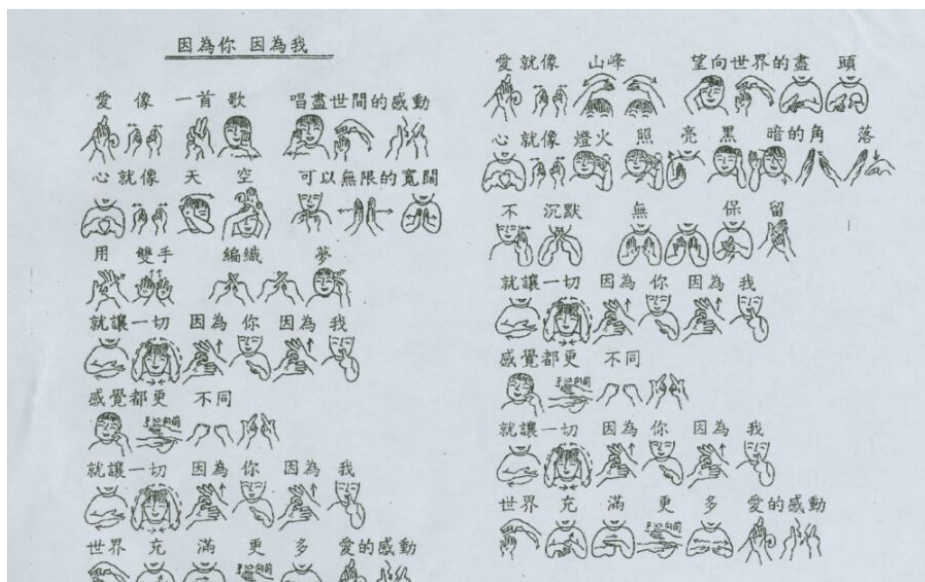 因為你 因為我
愛 像 一首 歌 唱盡世間的感動
心就像 天 空 可以無限的寬闊
用 雙手 編織 夢
就讓一切 因為 你 因為 我
感覺都更 不同
就讓一切 因為 你 因為 我
世界 充 滿 更 多 愛的感動
愛就像 山峰 望向世界的盡 頭
心就像燈火 照 亮 黑 暗的角 落
不 沉默 無 保 留
就讓一切 因為 你 因為 我
感覺都更 不同
就讓一切 因為 你 因為 我
世界 充 滿 更 多 愛的感動